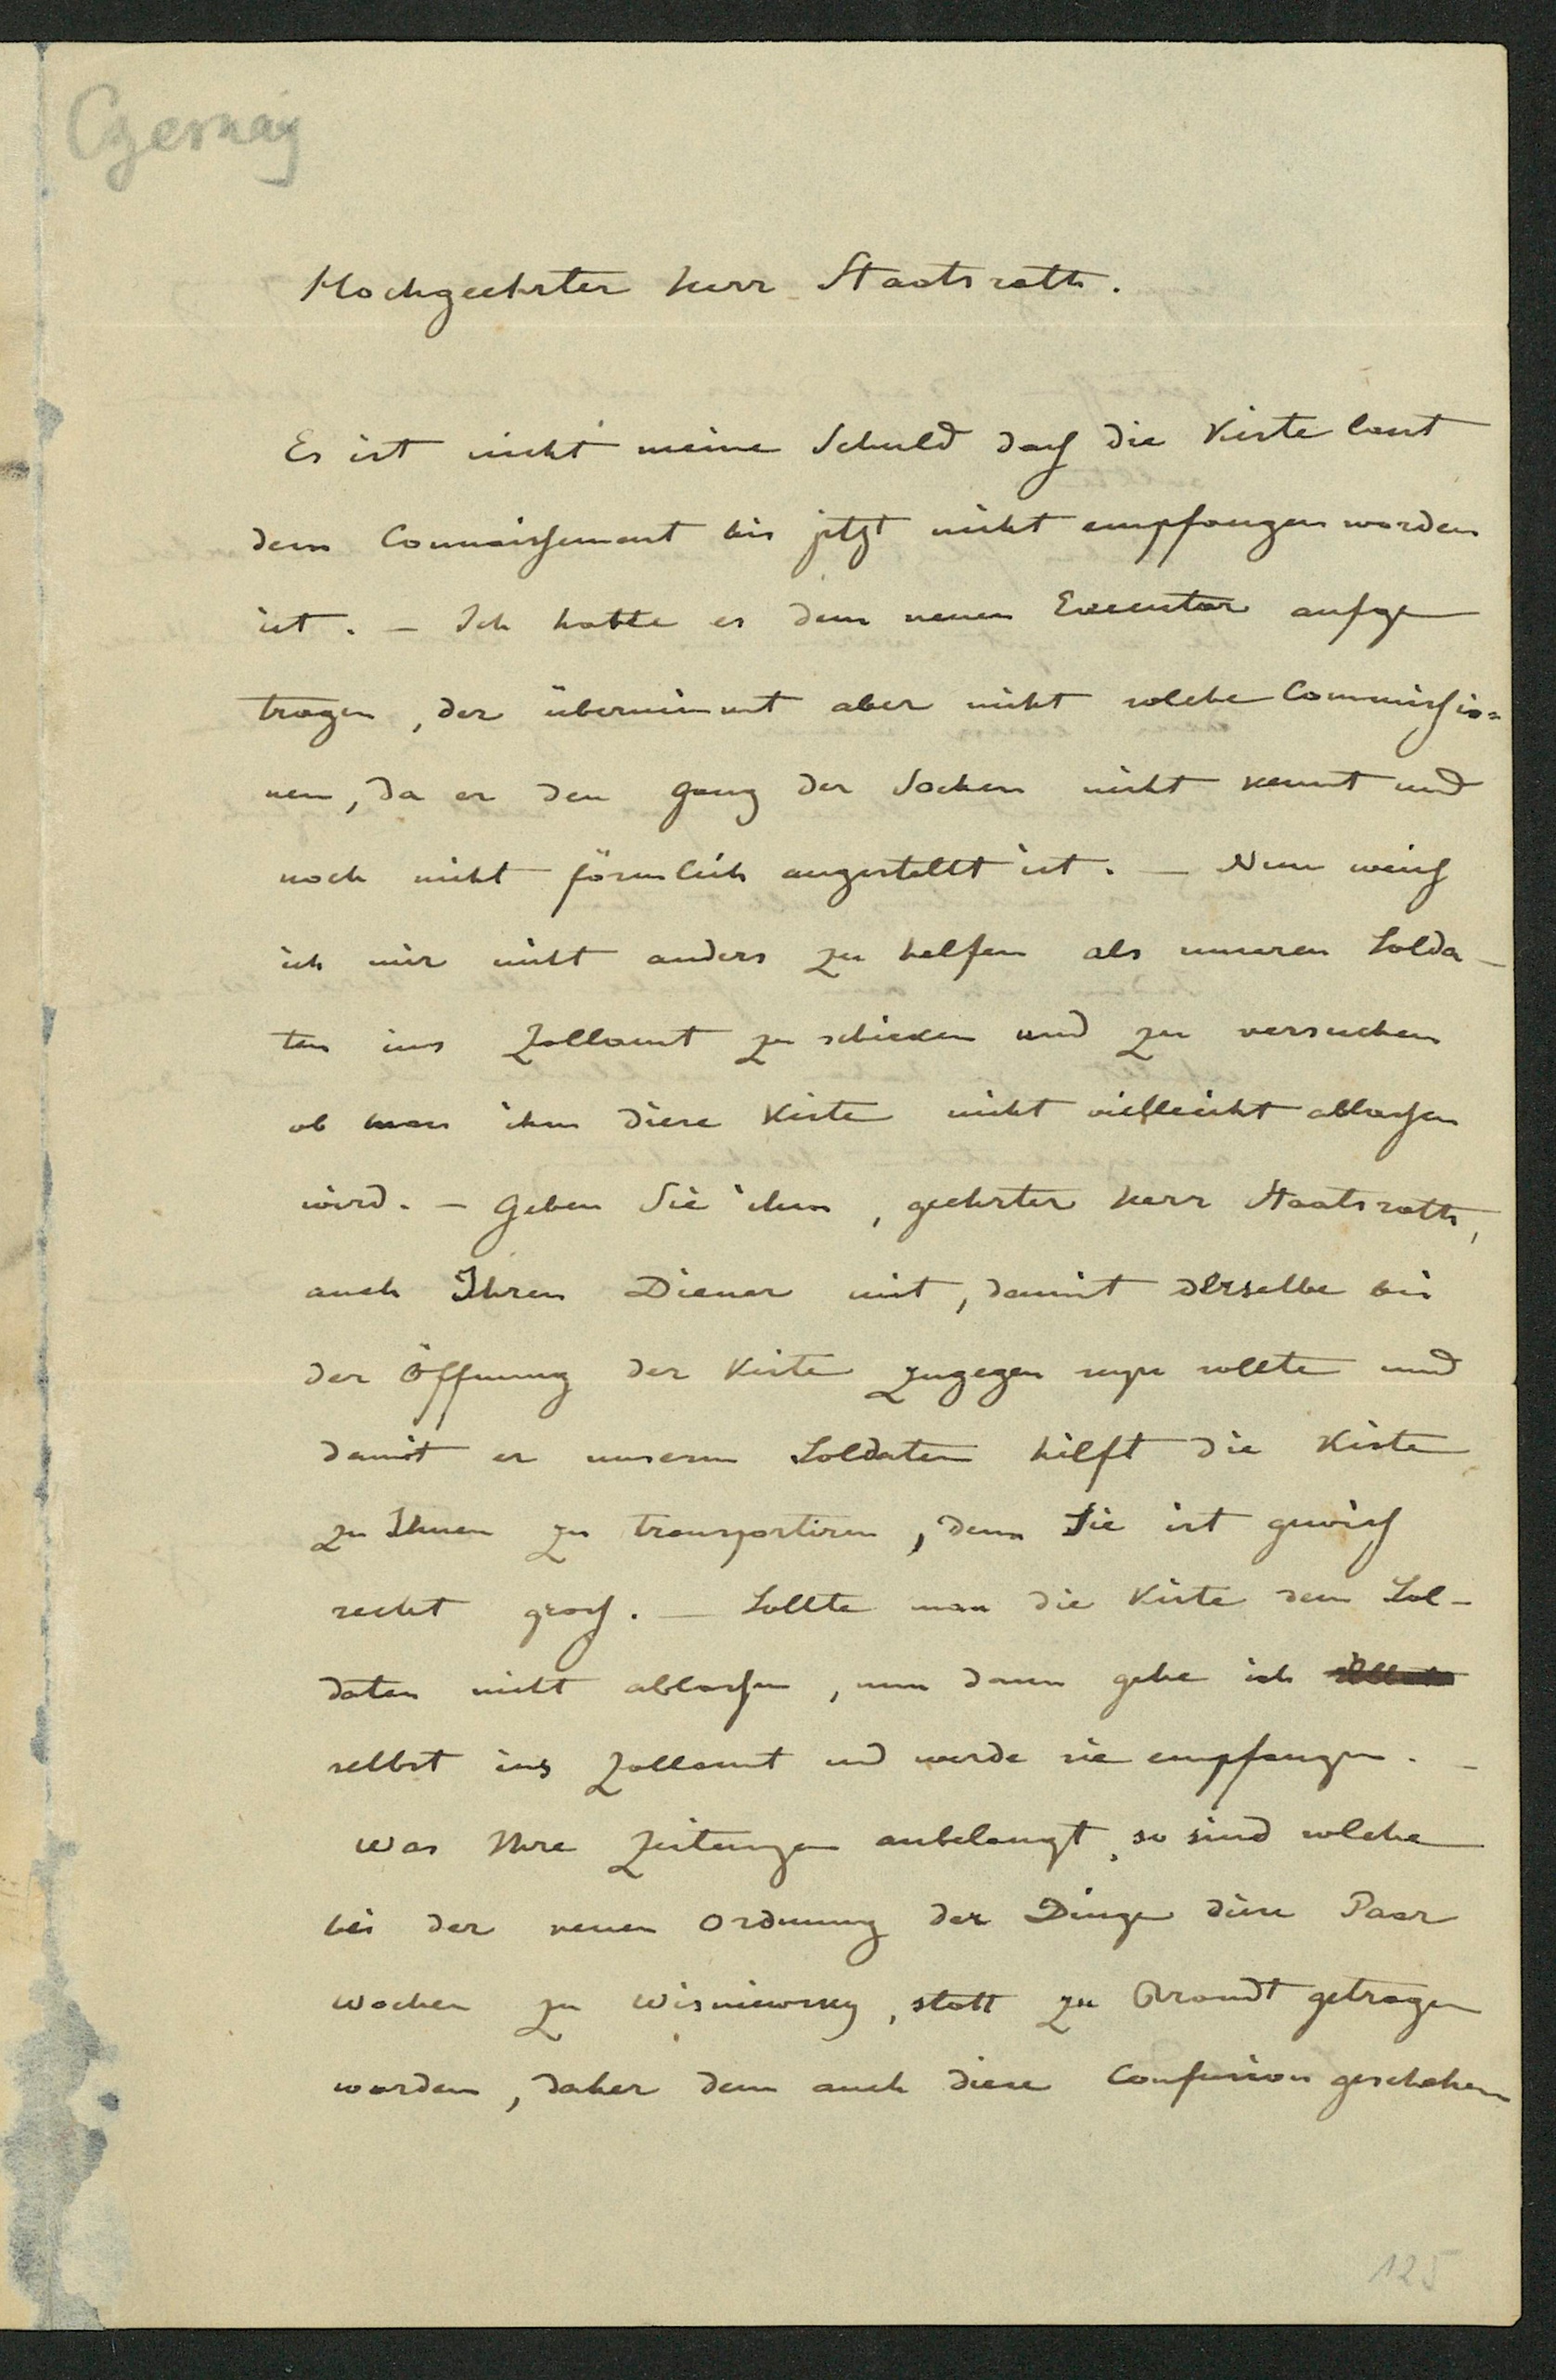 Czernay
Hochgeehrter Herr Staatsrath.
Es ist nicht meine Schuld daß die Kiste laut
dem Connaissement bis jetzt nicht empfangen worden
ist. – Ich hatte es dem neuen Executor aufge
tragen, der übernimmt aber nicht solche Commissio=
nen, da er den Gang der Sachen nicht kennt und
noch nicht förmlich angestellt ist. – Nun weiß
ich mir nicht anders zu helfen als unseren Solda-
ten ins Zollamt zu schicken und zu versuchen
ob man ihm diese Kiste nicht vielleicht ablassen
wird. – Geben Sie ihm, geehrter Herr Staatsrath,
auch Ihren Diener mit, damit derselbe bei
der Öffnung der Kiste zugegen seyn sollte und
damit er unserm Soldaten hilft die Kiste
zu Ihnen zu transportiren, denn Sie ist gewiß
recht groß. – Sollte man die Kiste dem Sol-
daten nicht ablassen, nun dann gehe ich
selbst ins Zollamt und werde sie empfangen. –
Was Ihre Zeitungen anbelangt, so sind solche
bei der neuen Ordnung der Dinge diese Paar
Wochen zu Wisniewsky, statt zu Brandt getragen
worden, daher denn auch diese Confusion geschehen
125